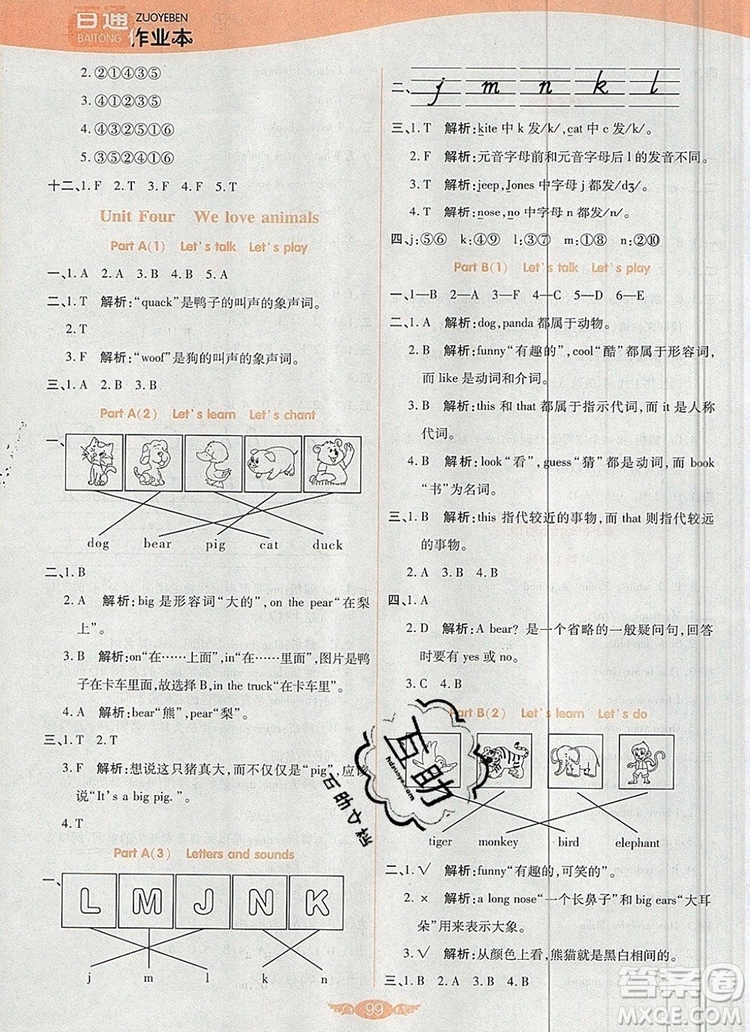 百通
BAITONG
ZUOYEBEN
作业本
2. ②①④③⑤
3. ④①②③⑤
4. ④③②⑤①⑥
5. ③②④⑤①⑥
十二、1. F  2. T  3. F  4. F  5. T
Unit Four  We love animals
Part A(1)  Let's talk  Let's play
一、1. A  2. A  3. B  4. B  5. A
二、1. T  解析:“quack”是鸭子的叫声的象声词。
2. T
3. F  解析:“woof”是狗的叫声的象声词。
三、1. A  2. B  3. B
Part A(2)  Let's learn  Let's chant
一、
dog  bear  pig  cat  duck
二、1. B
2. A  解析:big 是形容词“大的”, on the pear“在梨
上”。
3. B  解析:on“在……上面”, in“在……里面”, 图片是鸭
子在卡车里面, 故选择 B, in the truck“在卡车里面”。
4. A  解析:bear“熊”, pear“梨”。
三、1. T  2. T
3. F  解析:想说这只猪真大, 而不仅仅是“pig”, 应
说“It's a big pig.”。
4. T
Part A(3)  Letters and sounds
一、
L M J N K
j m l k n
二、j m n k l
三、1. T  解析:kite 中 k 发/k/, cat 中 c 发/k/。
2. F  解析:元音字母前和元音字母后 l 的发音不同。
3. T  解析:jeep, Jones 中字母 j 都发/dʒ/。
4. T  解析:nose, no 中字母 n 都发/n/。
四、j:⑤⑥  k:④⑨  l:③⑦  m:①⑧  n:②⑩
Part B(1)  Let's talk  Let's play
一、1—B  2—C  3—A  4—F  5—D  6—E
二、1. A  解析:dog, panda 都属于动物。
2. B  解析:funny“有趣的”, cool“酷”都属于形容词,
而 like 是动词和介词。
3. B  解析:this 和 that 都属于指示代词, 而 it 是人称
代词。
4. B  解析:look“看”, guess“猜”都是动词, 而 book
“书”为名词。
三、1. B  解析:this 指代较近的事物, 而 that 则指代较远
的事物。
2. A  3. B  4. B
四、1. A
2. D  解析:A bear? 是一个省略的一般疑问句, 回答
时要有 yes 或 no。
3. C  4. B
Part B(2)  Let's learn  Let's do
互助
百助文档
tiger  monkey  bird  elephant
二、1. √  解析:funny“有趣的, 可笑的”。
2. ×  解析:a long nose“一个长鼻子”和 big ears“大耳
朵”用来表示大象。
3. √  解析:从颜色上看, 熊猫就是黑白相间的。
三、1. B  2. A  3. B  4. B
99
答案圈
MXQE.COM